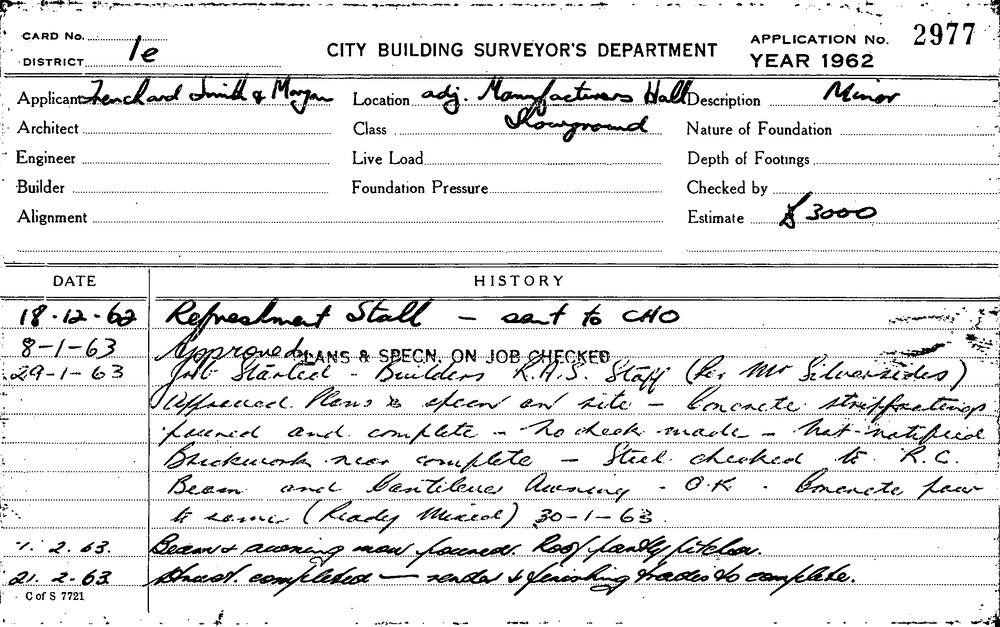 CARD No.
DISTRICT 1e
CITY BUILDING SURVEYOR'S DEPARTMENT
APPLICATION No. 2977
YEAR 1962
Applicant Trenchard Smith & Morgan
Location adj. Manufacturers Hall
Showground
Description Minor
Architect
Class
Nature of Foundation
Engineer
Live Load
Depth of Footings
Builder
Foundation Pressure
Checked by
Alignment
Estimate £3000
DATE
HISTORY
18-12-62 Refreshment Stall - sent to CHO
8-1-63 Approved
PLANS & SPECN. ON JOB CHECKED
29-1-63 Job Started - Builders R.A.S. Staff (Per Mr Silversides)
Approved Plans & specn on site - Concrete strip footings
poured and complete - No check made - Not notified
Brickwork near complete - Steel checked to R.C.
Beam and Cantilever Awning - O.K. - Concrete pour
to same (Ready Mixed) 30-1-63.
2. 63. Beam & awning now poured. Roof partly pitched.
21. 2. 63 Struct. completed — render & finishing trades to complete.
C of S 7721